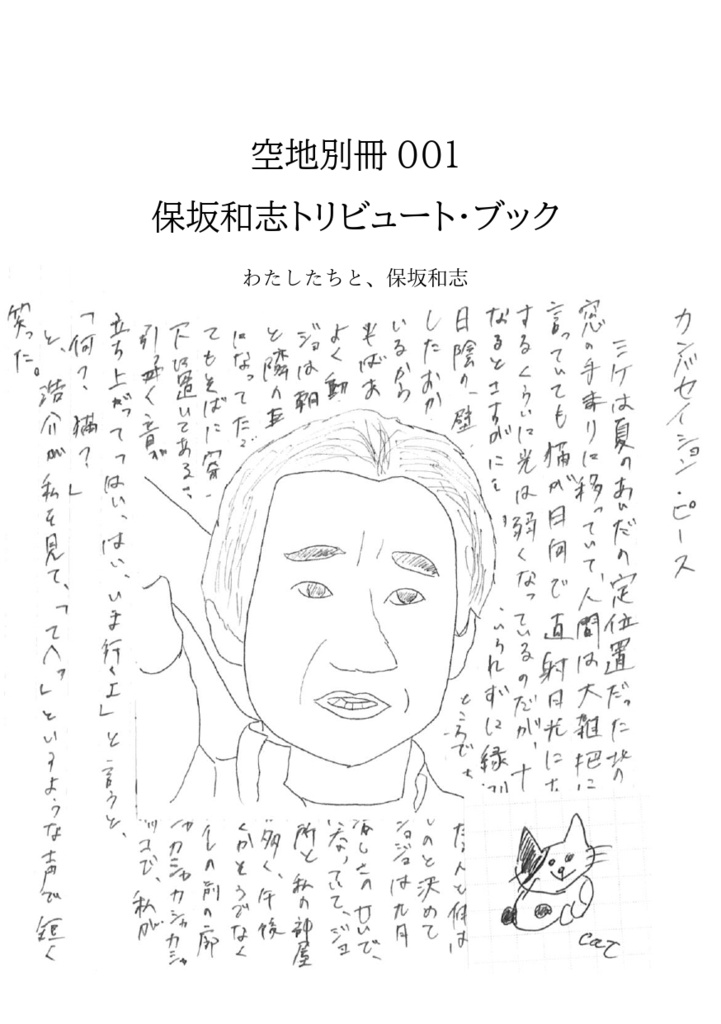 空地別冊 001
保坂和志トリビュート・ブック
わたしたちと、保坂和志
カンバセイション・ピース
ミケは夏のあいだの定位置だった北の
窓の手すりに移っていて、人間は大雑把に
言っていても猫が日向で直射日光にた
するくらいに光は弱くなっているのだが、十
なるとさすがにそ
いられずに縁側
日陰の、壁
ところで、
したおか
しのと決めて
いるから
ョジョは九月
そばあ
涼しさのせいで、
よく動
いなっていて、ジョ
ジョは朝
所と私の部屋
と隣の
多く、午後
になってたぶ
くかそうでなく
てもそばに寄
その前の廊
下に置いてある
カシャカシャカシャ
引っ掻く音が
ッコで、私が
立ち上がって「はい、はい、いま行くよ」と言うと、
「何？、猫？」
と、浩介が私を見て、「てへっ」というような声で短く
笑った。
cat